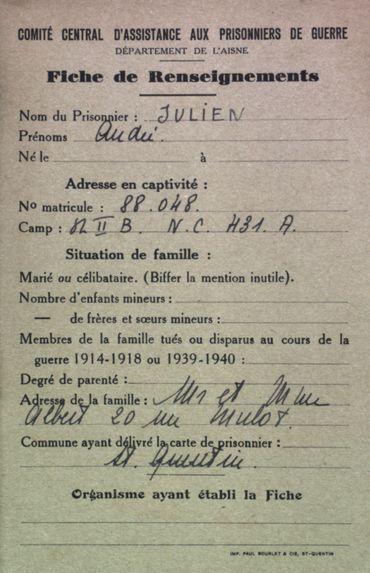 COMITÉ CENTRAL D'ASSISTANCE AUX PRISONNIERS DE GUERRE
DÉPARTEMENT DE L'AISNE
Fiche de Renseignements
Nom du Prisonnier : JULIEN
Prénoms André.
Né le à
Adresse en captivité :
No matricule : 88.048.
Camp : II B. N.C. 431. A.
Situation de famille :
Marié ou célibataire. (Biffer la mention inutile).
Nombre d'enfants mineurs :
— de frères et sœurs mineurs :
Membres de la famille tués ou disparus au cours de la
guerre 1914-1918 ou 1939-1940 :
Degré de parenté :
Adresse de la famille : Mr et Mme
Albert 20 rue Mulot.
Commune ayant délivré la carte de prisonnier :
St. Quentin.
Organisme ayant établi la Fiche
IMP. PAUL BOURLET & CIE, ST-QUENTIN